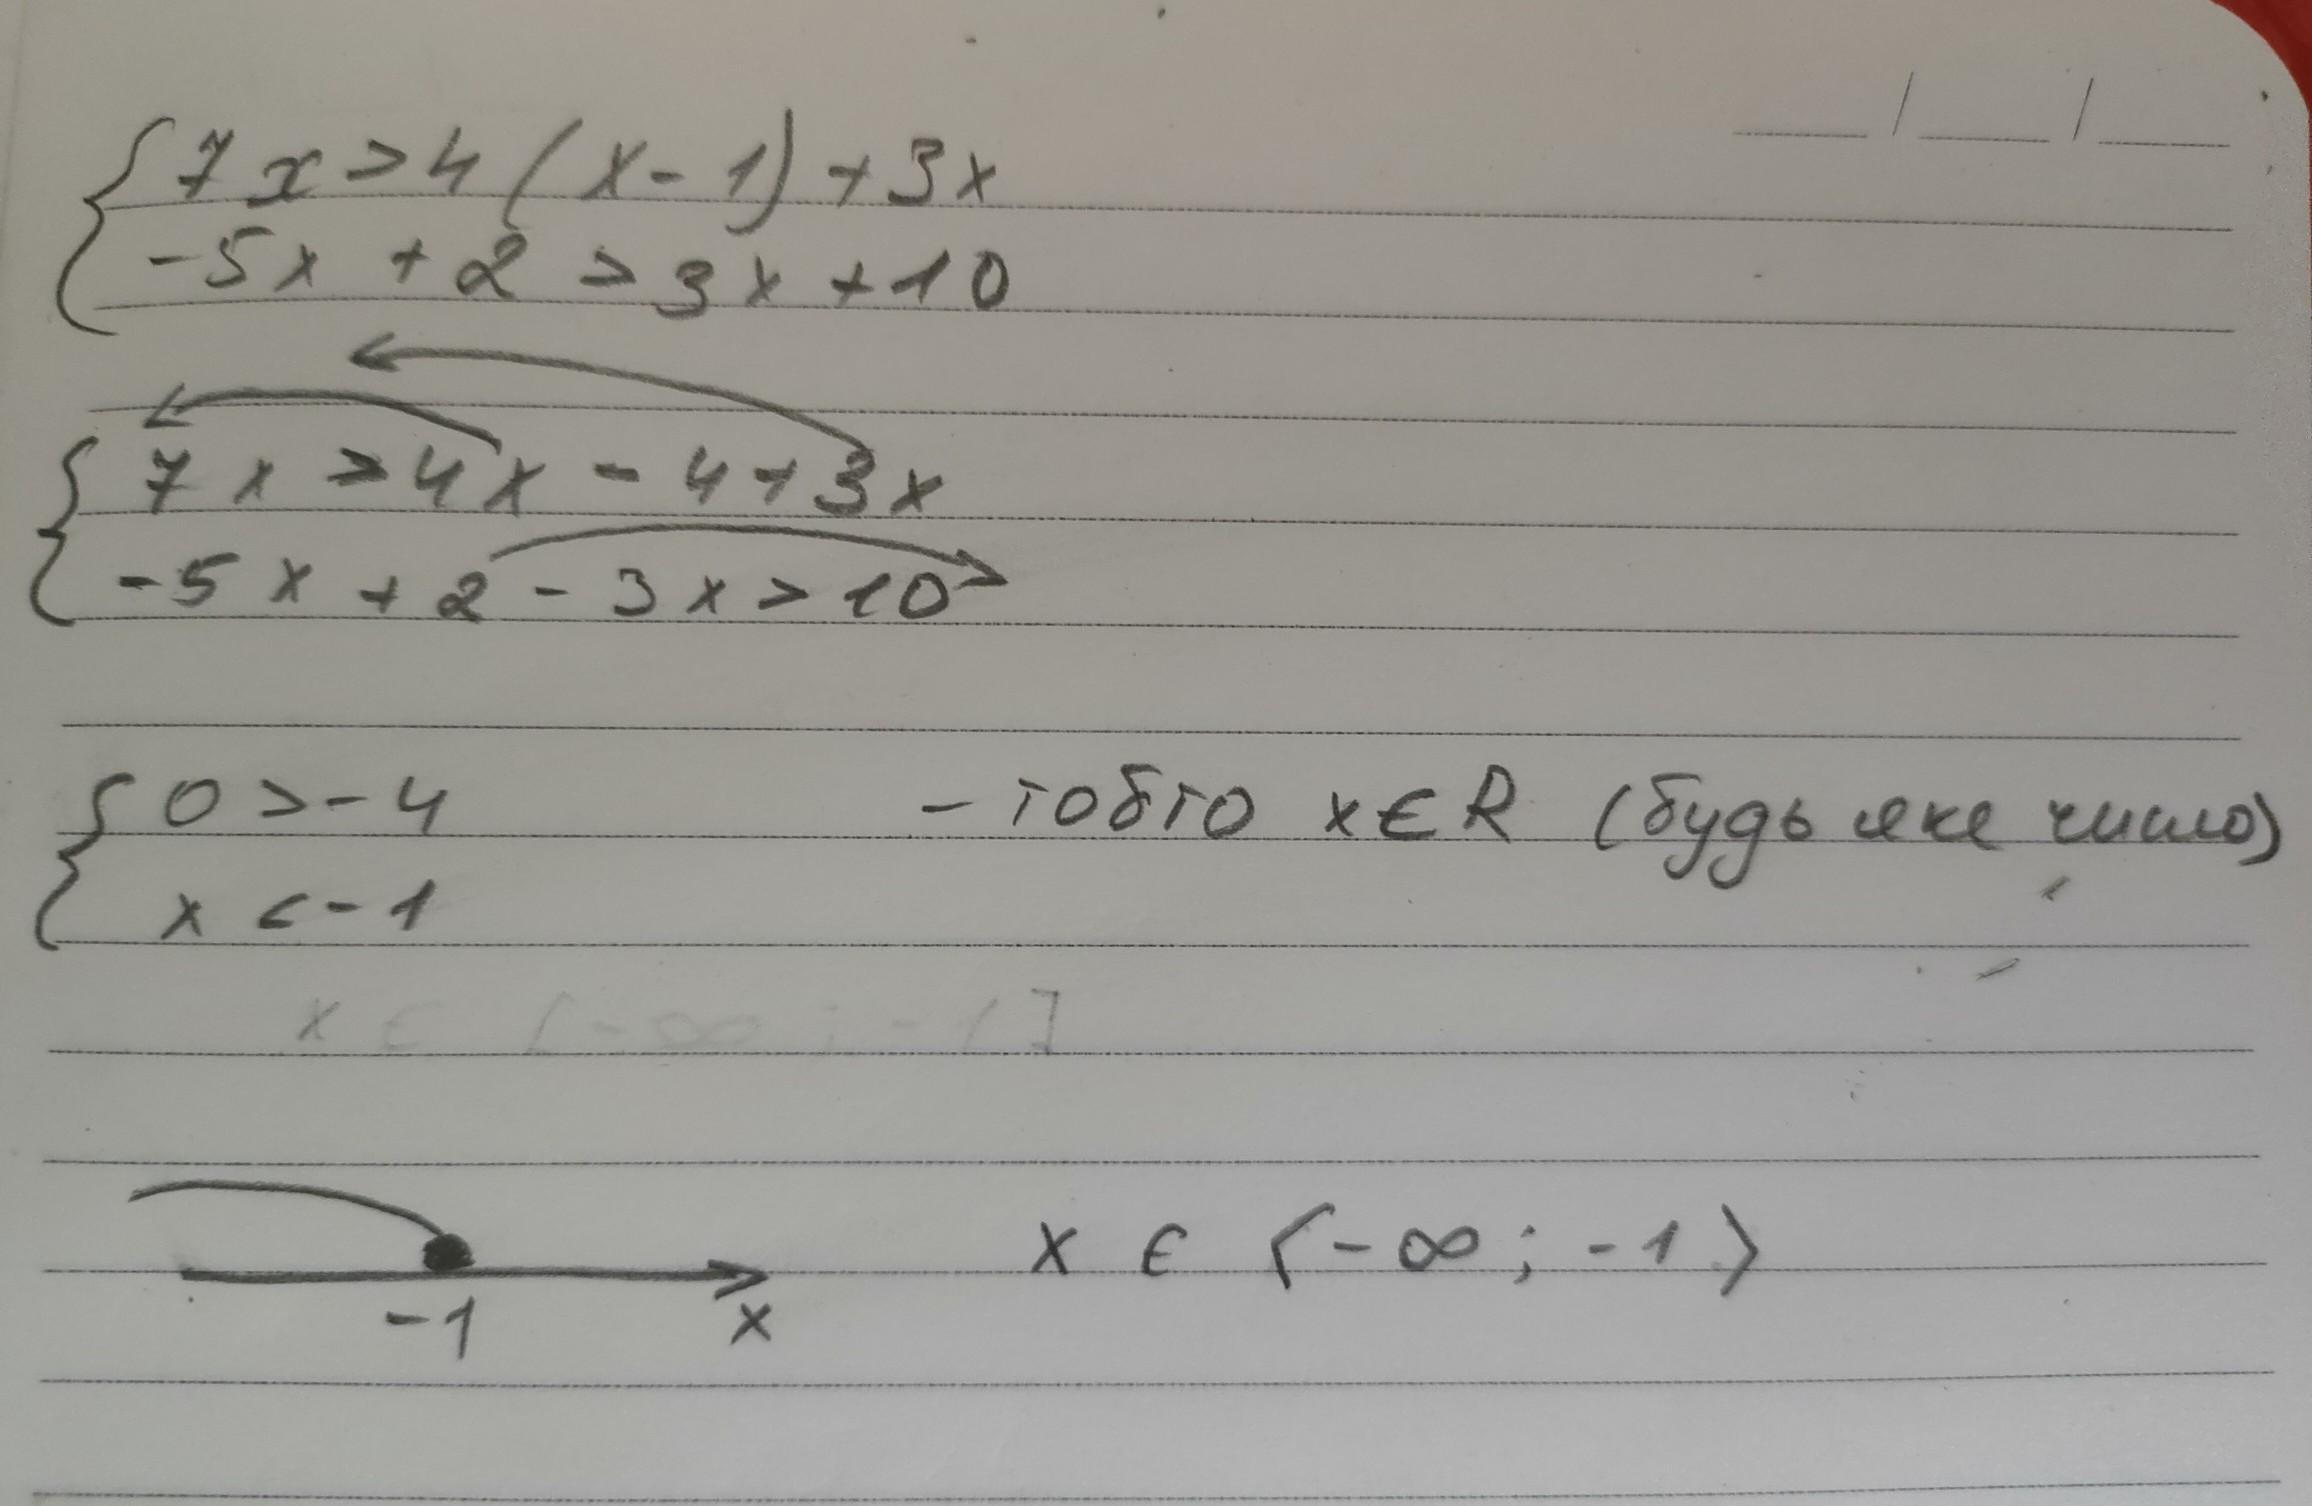 { 7x > 4(x - 1) + 3x
-5x + 2 > 3x + 10
{ 7x > 4x - 4 + 3x
-5x + 2 - 3x > 10
{ 0 > -4 - тобто x ∈ R (будь яке число)
x < -1
x ∈ (-∞ ; -1]
-1 x x ∈ (-∞ ; -1)